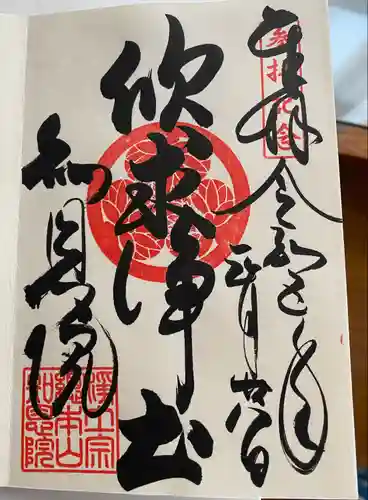 参拝記念
奉拝 令和五年
月廿八日
欣求浄土
知恩院
浄土宗
總本山
知恩院